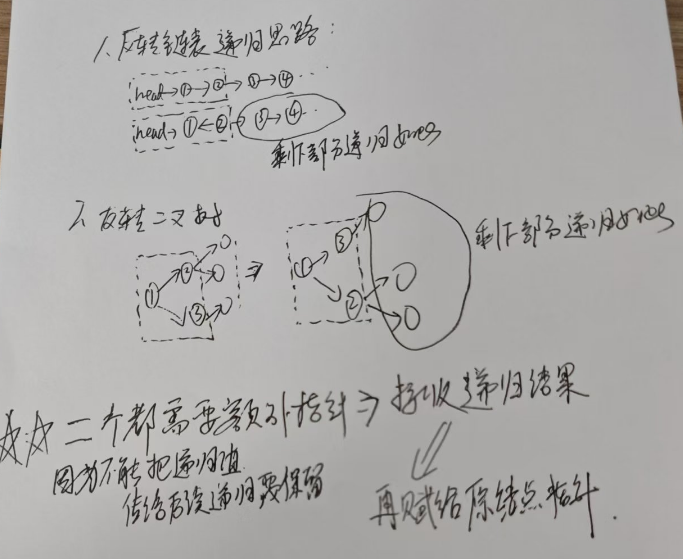 1、反转链表递归思路:
head→①→②→③→④...
head→①←② ③→④...
剩下部分递归
2、反转二叉树
①②③ ⇒ ①③②
剩下部分递归
☆☆二个都需要额外指针⇒接收递归结果
因为不能把递归值
传给后续递归要保留
再赋给原结点指针.